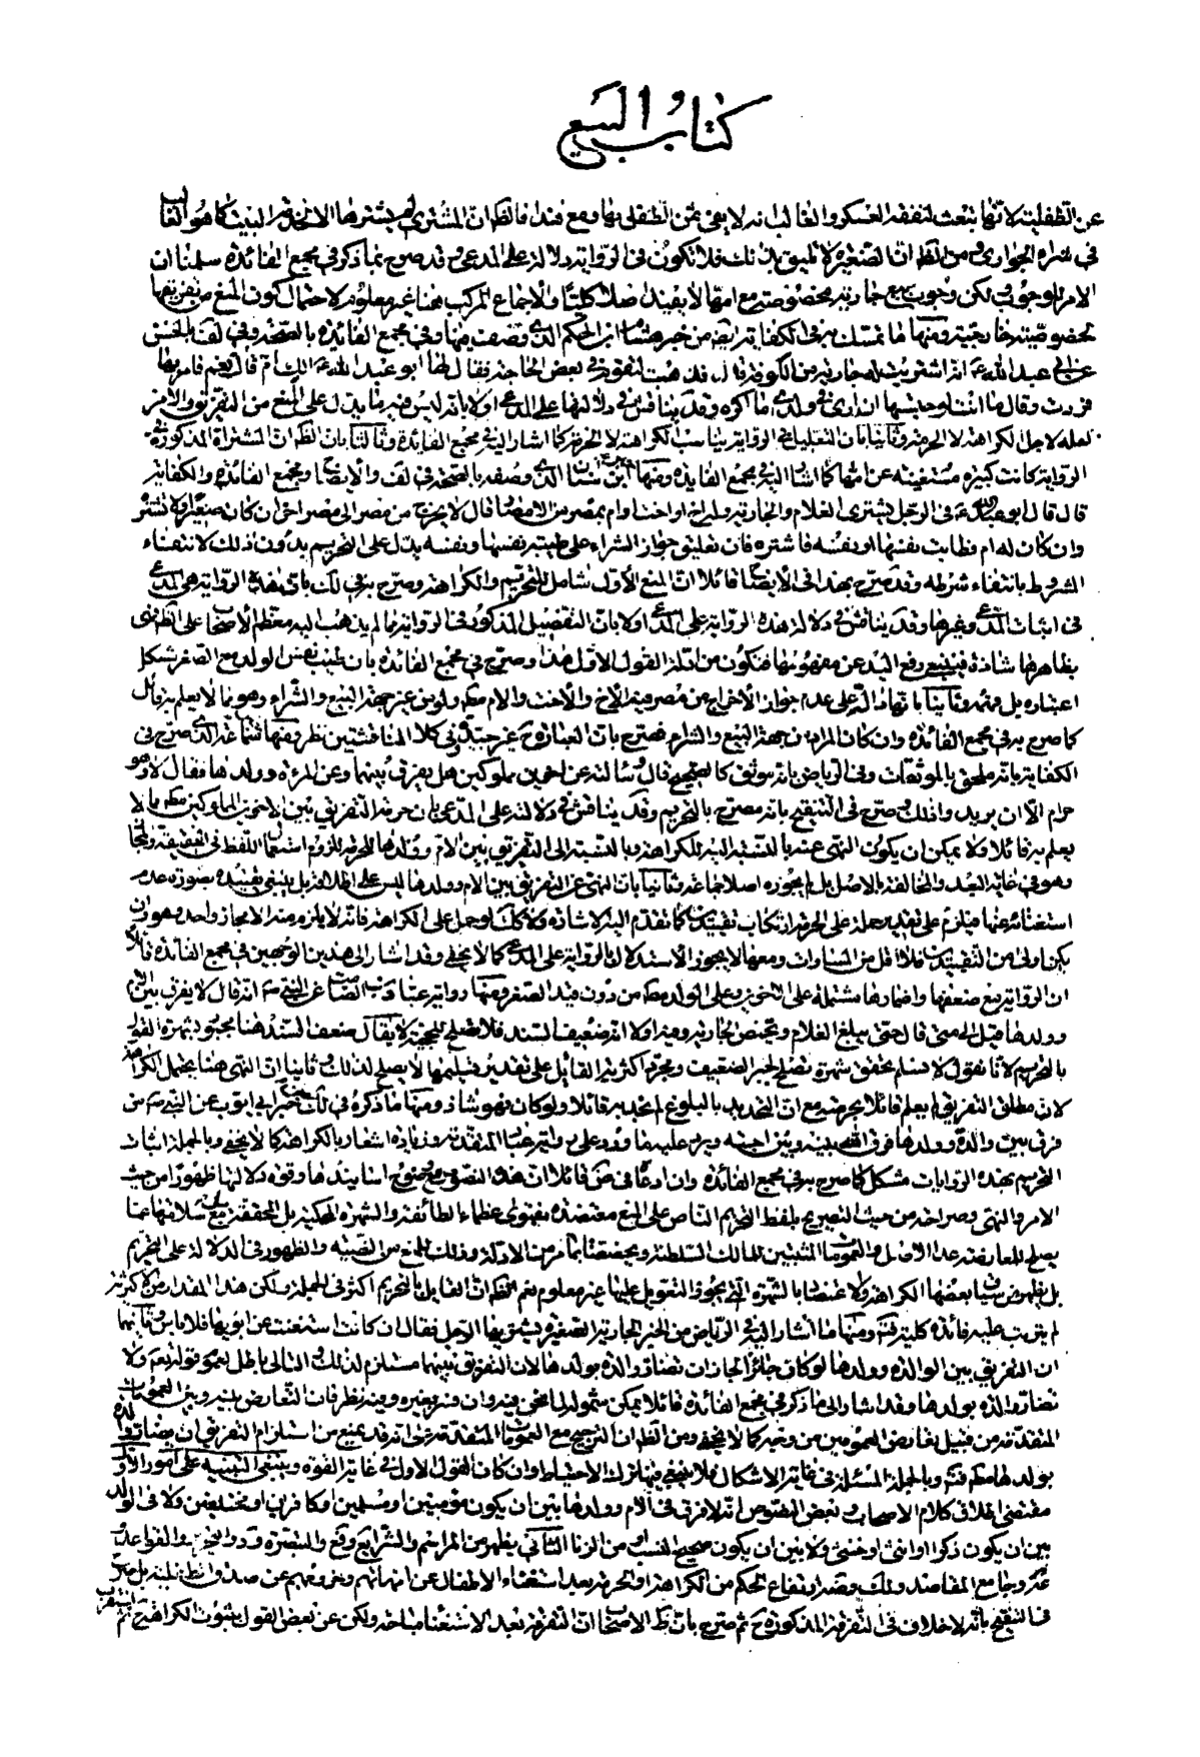 كتاب البيع
عن الطفلية لأنها بيعت لنفقة العسكر والغالب انه لا يفى بثمن الطفل بنائها ومع فندا فالظ ان المشترى لم يشترها الا لخدمة البيت كما هو الغالب
في شراء الجوارى ومن الظ ان الصغيرة لا تليق بذلك فلا تكون فى الرواية دلالة على المدعى وقد صرح بما ذكر في مجمع الفائدة سلمنا ان
الامر للوجوب لكن وجوب بيع جارية مخصوصة مع امها لا يفيد اصلا كليا والاجماع المركب هنا غير معلوم لاحتمال كون المنع من تفريقها
لخصوصية خارجية ومنها ما تمسك به فى الكفاية ايضا من خبر هشام ابن الحكم الذى وصفت فيها وفي مجمع الفائدة بالصحة وفي لف بالحسن
عن ابى عبد الله ع انه اشتريت له جارية من الكوفة قال فذهبت لتقوم في بعض الحاجة فقال لها ابو عبد الله ع الك ام قال نعم فامر بها
فردت وقال ما امنت لو حبستها ان ارى فى ولدى ما اكره وقد يناقش فى دلالتها على المدعى اولا بانه ليس فيه ما يدل على المنع من التفريق والامر
لعله لاجل الكراهة لا الحرمة وثانيا بان التعليل فى الرواية يناسب الكراهة لا الحرمة كما اشار اليه في مجمع الفائدة وثالثا بان الظ ان المشتراة المذكورة في
الرواية كانت كبيرة مستغنية عن امها كما اشار اليه في مجمع الفائدة ومنها خبر ابن سنان الذى وصفه بالصحة فى لف والايضاح ومجمع الفائدة والكفاية
قال قال ابو عبد الله ع فى الرجل يشترى الغلام والجارية وله اخ او اخت او ام بمصر من الامصار قال لا يخرج من مصر الى مصر اخر ان كان صغيرا ولا تشتر
وان كان له ام فطابت نفسها او نفسه فاشتره فان تعليق جواز الشراء على طيبة نفسها ونفسه يدل على التحريم بدون ذلك لانتفاء
المشروط بانتفاء شرطه وقد صرح بهذا فى الايضاح قائلا ان المنع الاول شامل للتحريم والكراهة وصرح به في لك بان هذه الرواية هى المدعى
فى اثبات المدعى وغيرها وقد يناقش في دلالة هذه الرواية على المدعى اولا بان التفصيل المذكور فى الرواية مما لم يذهب اليه معظم الاصحاب على الظ فهى
بظاهرها شاذة فينبغى رفع اليد عن مفهومها فتكون من ادلة القول الاول هذا وصرح في مجمع الفائدة بان طيب نفس الولد مع الصغر يشكل
اعتباره بل وفهمه وثانيا بانها دالة على عدم جواز الاخراج عن مصر فيه الاخ والاخت والام مطلقا ولو من غير جهة البيع والشراء وهو مما لا يعلم به قائل
كما صرح به في مجمع الفائدة وان كان المراد من جهة البيع والشراء فصرح بان العبارة ح غير جيدة وفي كلا المناقشتين نظر ومنها موثقة سماعة الذى صرح فى
الكفاية بانه ملحق بالموثقات وفى الرياض بانه موثق كالصحيح قال سالته عن اخوين مملوكين هل يفرق بينهما وعن المرءة وولدها فقال لا هو
حرام الا ان يريدوا ذلك وصرح فى التنقيح بانه مصرح بالتحريم وقد يناقش في دلالته على المدعى بان حرمة التفريق بين الاخوين المملوكين مطلقا مما لا
يعلم به قائلا ولا يمكن ان يكون النهى عنه بالنسبة اليه للكراهة وبالنسبة الى التفريق بين الام وولدها للحرمة للزوم استعمال اللفظ فى الحقيقة والمجاز
وهو في غاية البعد والمخالفة بالاصل بل لم يجوزه اصلا جماعة وثانيا بان النهى عن التفريق بين الام وولدها ليس على اطلاقه بل ينبغى تقييده بصورة عدم
استغنائه عنها فيلزم على تقدير حمله على الحرمة ارتكاب تقييدات كما تقدم اليه الاشارة ولا كك لو حمل على الكراهة فانه لا يلزم منه الا مجاز واحد وهو ان لم
يكن اولى من التقييدات فلا اقل من المساوات ومعها لا يجوز الاستدلال بالرواية على المدعى كما لا يخفى وقد اشار الى هذين الوجهين في مجمع الفائدة قائلا
ان الرواية مع ضعفها واضمارها مشتملة على الاخوين وعلى الولد مطلقا من دون قيد الصغر ومنها رواية عبادة بن الصامت عن النبى ص انه قال لا يفرق بين الام
وولدها قيل الى متى قال حتى يبلغ الغلام وتحيض الجارية وهذا كما انه ضعيف السند فلا يصلح للحجية لا يقال ضعف السند هنا مجبور بشهرة القول
بالتحريم لانا نقول لا نسلم تحقق شهرة تصلح لجبر الضعيف ومجرد اكثرية القائل على تقدير تسليمها لا يصلح لذلك وثانيا ان النهى هنا يحتمل الكراهة
لان مطلق التفريق لم يعلم قائلا بحرمته مع ان التحديد بالبلوغ لم نجد به قائلا ولو كان فهو شاذ ومنها ما ذكره في لك من خبر ابى ايوب عن النبى ص من
فرق بين والدة وولدها فرق الله بينه وبين احبته ويرد عليه ما ورد على رواية عبادة المتقدمة وزيادة اشعاره بالكراهة كما لا يخفى وبالجملة اثبات
التحريم بهذه الروايات مشكل كما صرح به في مجمع الفائدة وان ادعى فى ض قائلا ان هذه النصوص مع وضوح اسانيدها وقوة دلالتها ظهورا من حيث
الامر والنهى وصراحة من حيث التصريح بلفظ التحريم الناص على المنع معتضدة بفتوى عظماء الطائفة والشهرة المحكية بل المحققة مع سلامتها عما
يصلح للمعارضة عدا الاصل والعمومات المثبتين للمالك السلطنة ويخصصها بما مر من الادلة وذلك للمنع من القضية والظهور فى الدلالة على التحريم
بل يظهر من سياق بعضها الكراهة ولا اعتضاد بالشهرة التى يجوز التعويل عليها غير معلوم نعم الظ ان القايل بالتحريم اكثر فى الجملة ولكن هذا المقدار من الاكثرية
لم يترتب عليه فائدة كلية فتم ومنها ما اشار اليه في الرياض من الخبر الجارية الصغيرة يشتريها الرجل فقال ان كانت استغنت عن ابويها فلا باس ومنها
ان التفريق بين الوالدة وولدها لو كان جائزا لجاز ان تضار والدة بولدها لان التفريق بينهما مستلزم لذلك والتالى باطل لعموم قوله تعم ولا
تضار والدة بولدها وقد اشار الى ما ذكر في مجمع الفائدة قائلا يمكن شموله لما نحن فيه وان فسر بغيره وفيه نظر فان التعارض بينه وبين العمومات
المتقدمة من قبيل تعارض العمومين من وجه كما لا يخفى ومن الظ ان الترجيح مع العمومات المتقدمة على انه قد يمنع من استلزام التفريق ان تضار والدة
بولدها مطلقا فتم وبالجملة المسئلة في غاية الاشكال فلا ينبغى فيها ترك الاحتياط وان كان القول الاول في غاية القوة وينبغى التنبيه على امور الاول
مقتضى اطلاق كلام الاصحاب وبعض النصوص انه لا فرق فى الام وولدها بين ان يكون مؤمنين او مسلمين او كافرين او مختلفين ولا فى الولد
بين ان يكون ذكرا او انثى او خنثى ولا بين ان يكون صحيح النسب او من الزنا الثانى يظهر من المراسم والشرايع وفع والتبصرة وعد والتحرير والقواعد
عد وجامع المقاصد ولك وضه ارتفاع الحكم من الكراهة او الحرمة بعد استغناء الاطفال عن امهاتهم وخروجهم عن صدق الطفلية بل صرح
فى التنقيح بانه لا خلاف فى التفرقة المذكورة ح ثم صرح بان ظ الاصحاب ان التفرقة بعد الاستغناء مباحة ولكن عن بعض القول بثبوت الكراهة ح ثم